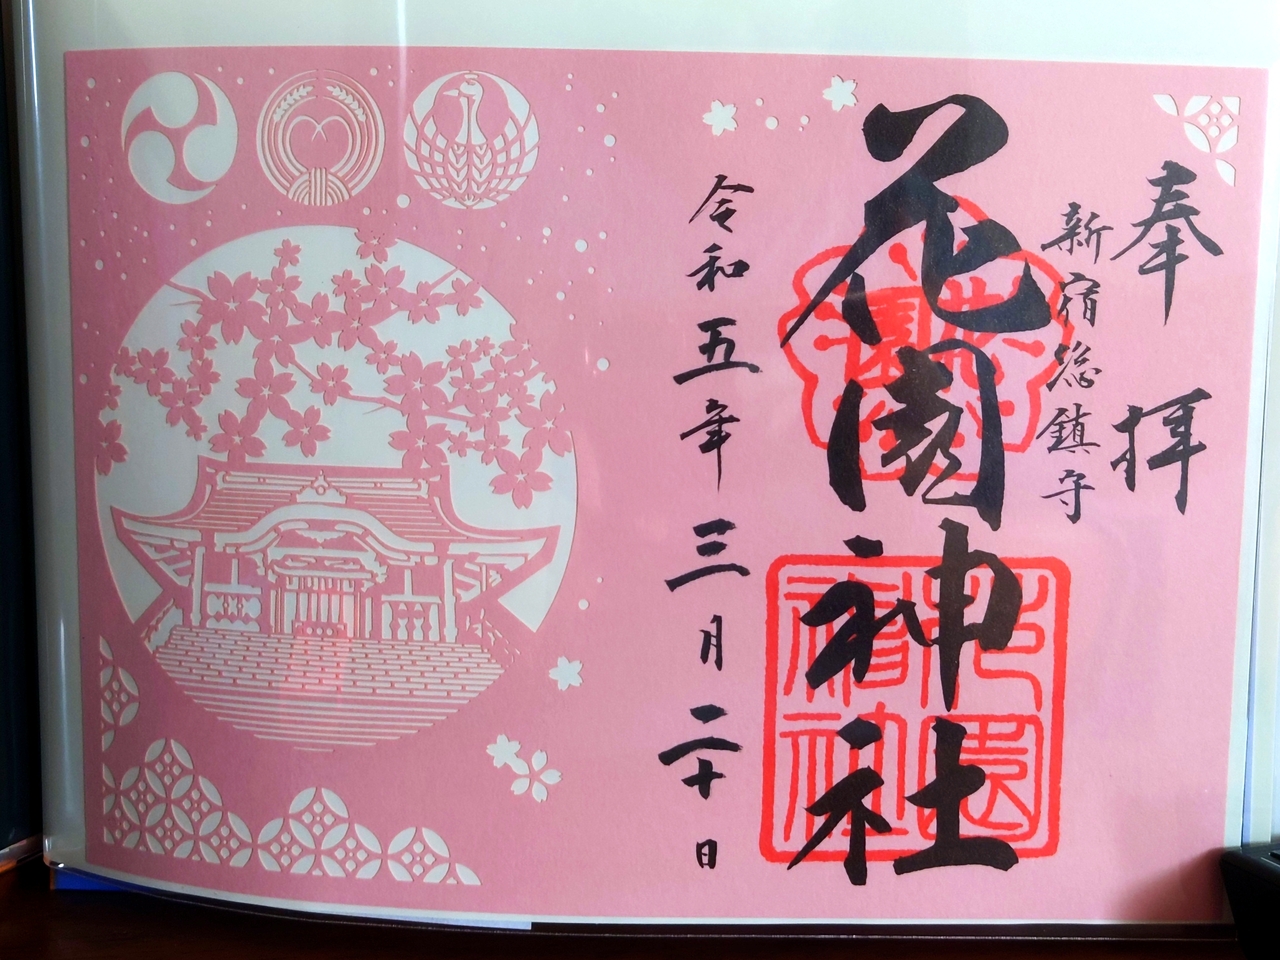 奉拝
新宿総鎮守
花園神社
花園神社
令和五年三月二十日